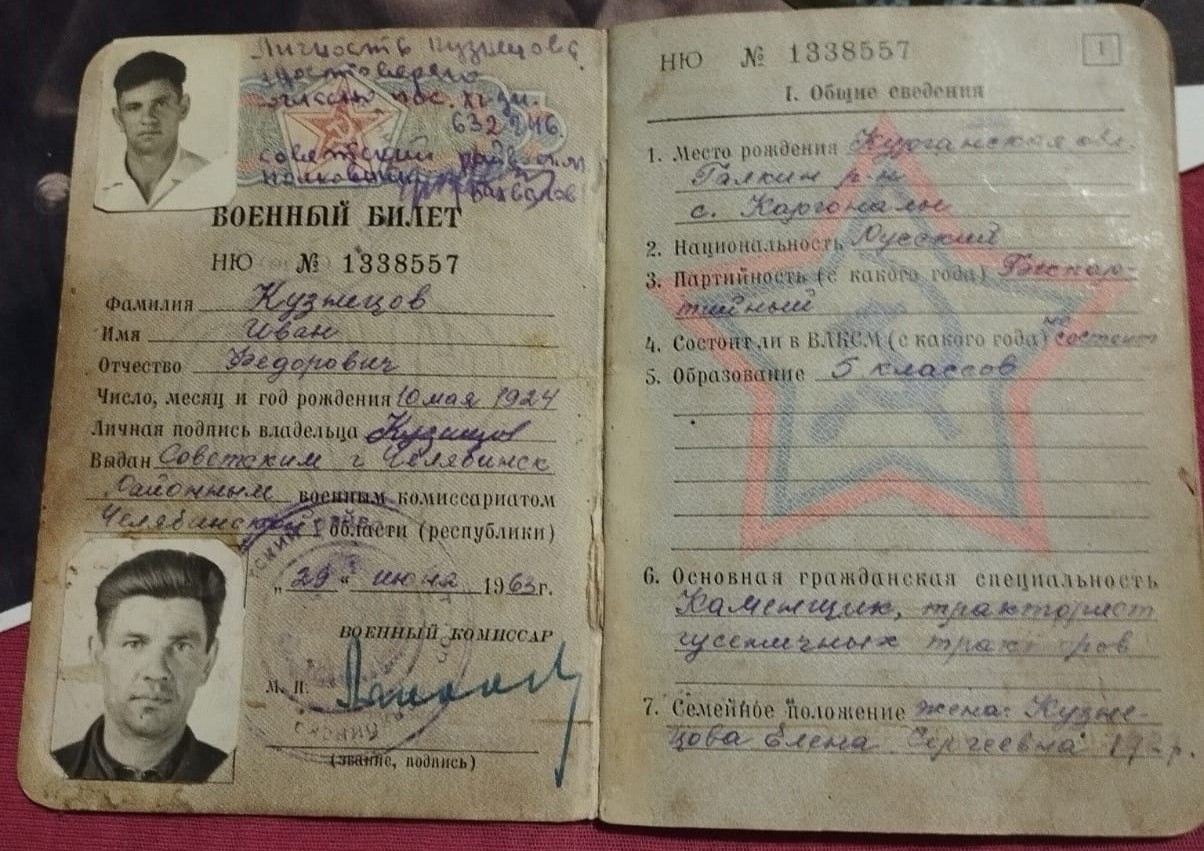 Личность Кузнецова
удостоверено
согласно пос. хр зм.
632246.
Советский райвоенком
полковник Вахвалов
ВОЕННЫЙ БИЛЕТ
НЮ № 1338557
Фамилия Кузнецов
Имя Иван
Отчество Федорович
Число, месяц и год рождения 10 мая 1924
Личная подпись владельца Кузнецов
Выдан Советским г Челябинск
Районным военным комиссариатом
Челябинской области (республики)
„29“ июня 1963г.
ВОЕННЫЙ КОМИССАР
М. П.
(звание, подпись)
НЮ № 1338557
1
I. Общие сведения
1. Место рождения Курганская обл.
Галкин р-н
с.
2. Национальность Русский
3. Партийность (с какого года) Беспар-
тийный
4. Состоит ли в ВЛКСМ (с какого года) не состоит
5. Образование 5 классов
6. Основная гражданская специальность
Каменщик, тракторист
гусеничных тракторов
7. Семейное положение жена: Кузне-
цова Елена Сергеевна